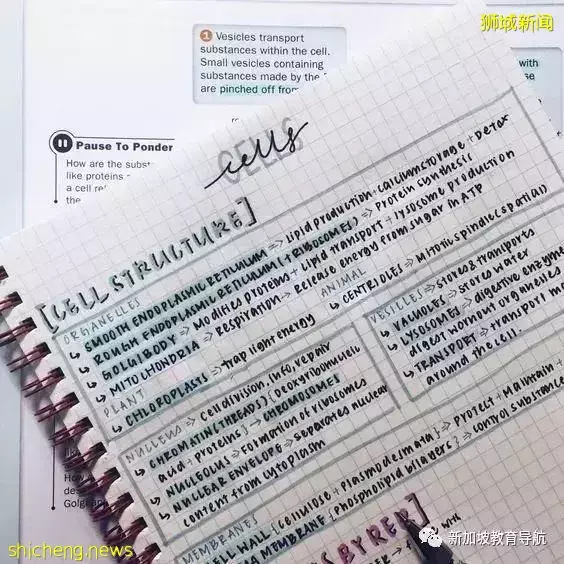 狮城新闻
1 Vesicles transport
substances within the cell.
Small vesicles containing
substances made by the
are pinched off from
with
se
Pause To Ponder
How are the subst
like proteins
a cell
the
cells
CELLS
[CELL STRUCTURE]
ORGANELLES
↳ SMOOTH ENDOPLASMIC RETICULUM → Lipid production + calcium storage + Detox
↳ ROUGH ENDOPLASMIC RETICULUM (+RIBOSOMES) → Protein synthesis
↳ GOLGI BODY → Modifies proteins + Lipid transport + lysosome production
↳ MITOCHONDRIA → Respiration → Release energy from sugar in ATP
PLANT
↳ CHLOROPLASTS → trap light energy
ANIMAL
↳ CENTRIOLES → Mitotic spindle (spatial)
VESICLES → stores & transports
↳ VACUOLES → stores water
↳ LYSOSOMES → digestive enzyme
digest wornout organelles
↳ TRANSPORT → transport mo
around the cell.
NUCLEUS → Cell division, info, repair
↳ CHROMATIN (THREADS) {Deoxyribonucleic
acid + proteins} → CHROMOSOMES
↳ NUCLEOLUS → Formation of ribosomes
↳ NUCLEAR ENVELOPE → separates nuclear
content from cytoplasm
MEMBRANES
CELL WALL {cellulose + plasmodesmata} → Protect + Maintain +
MA MEMBRANE {Phospholipid bilayers} → control substance
S BY RER
Golgi
shicheng.news
新加坡教育导航